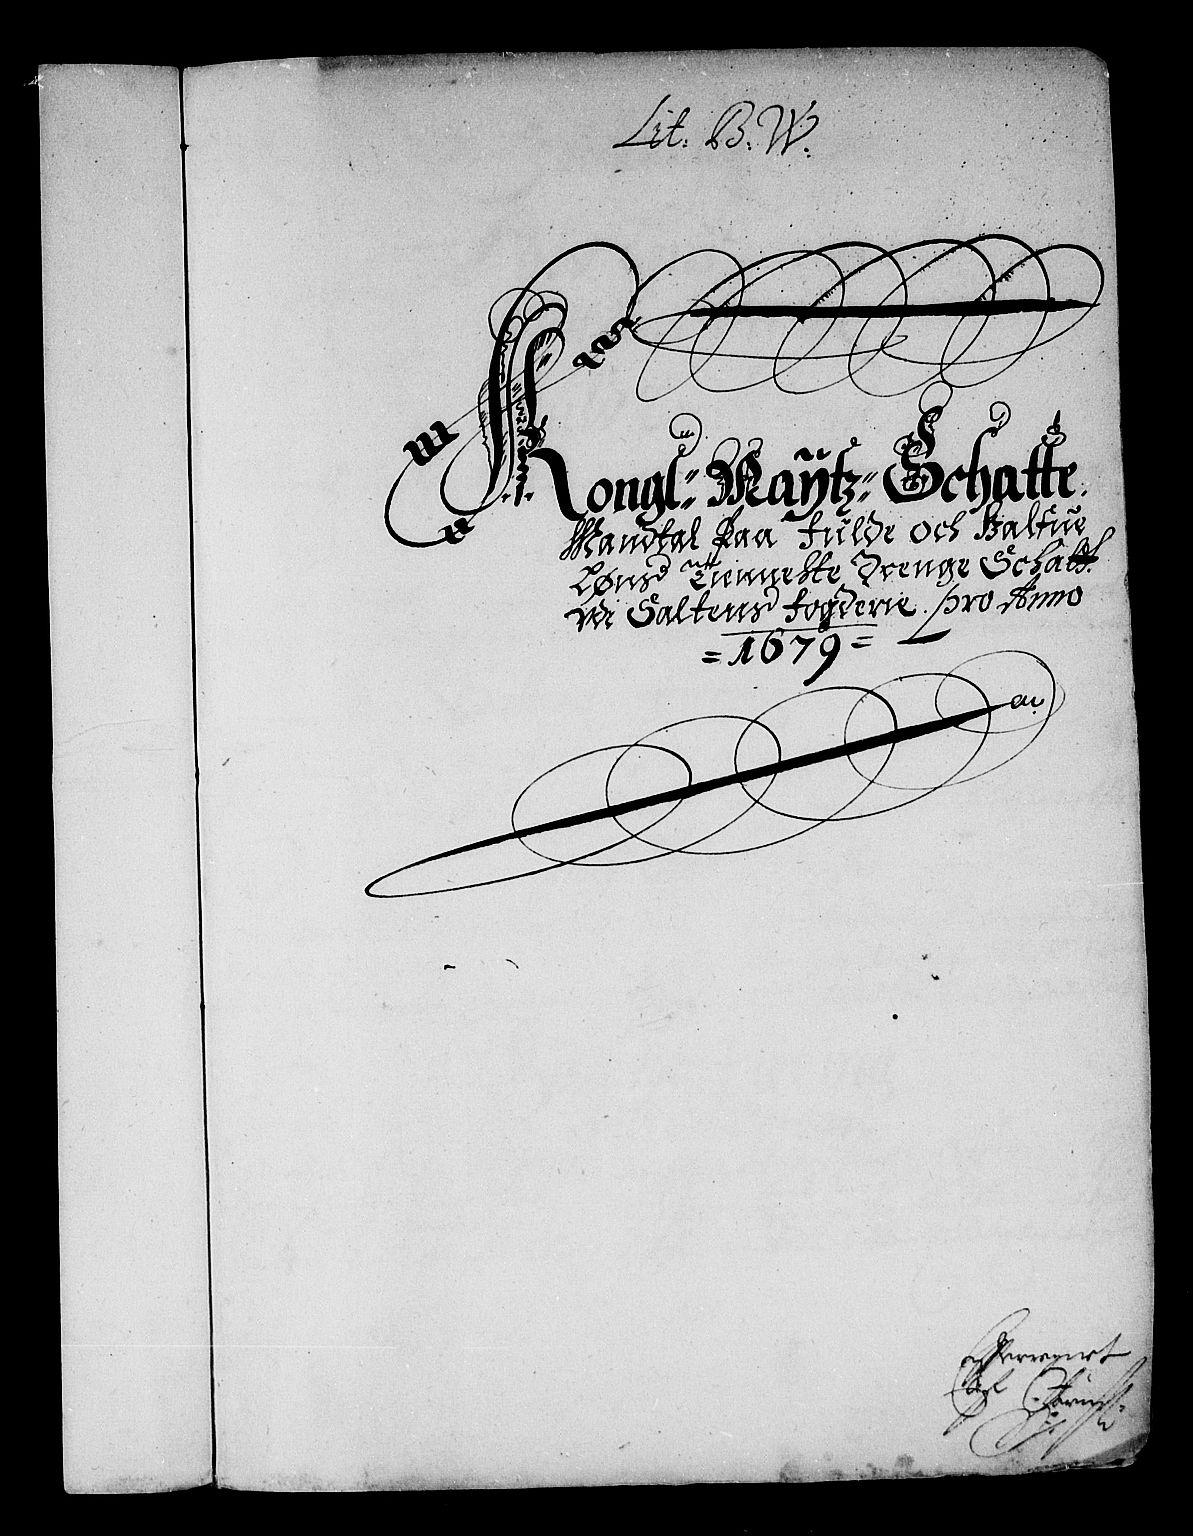 Lit: B: W:
Kongl: Maÿtz: Schatte
Mandtal Paa fulde och Halfue
Lønsd Tienneste Drenge Schatt
udi Saltensd fogderie pro Anno
=1679=